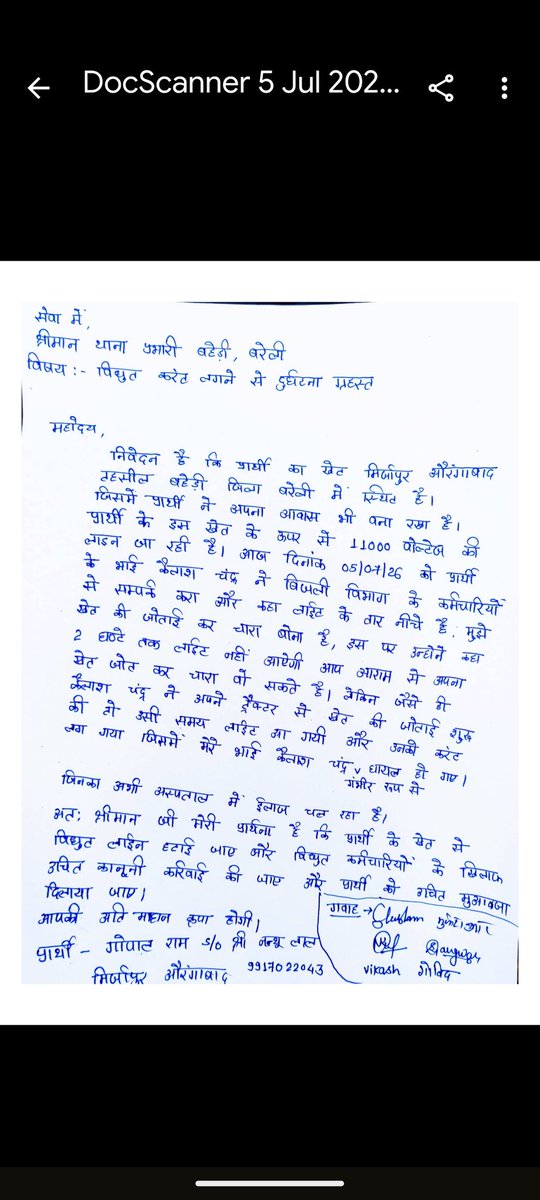 DocScanner 5 Jul 202...
सेवा में,
श्रीमान थाना प्रभारी बहेड़ी, बरेली
विषय :- विद्युत करंट लगने से दुर्घटना ग्रहस्त
महोदय,
निवेदन है कि प्रार्थी का खेत मिर्जापुर औरंगाबाद
तहसील बहेड़ी जिला बरेली में स्थित है।
जिसमें प्रार्थी ने अपना आवास भी बना रखा है।
प्रार्थी के इस खेत के ऊपर से 11000 वोल्टेज की
लाइन जा रही है। आज दिनांक 05/07/26 को प्रार्थी
के भाई कैलाश चंद्र ने बिजली विभाग के कर्मचारियों
से सम्पर्क करा और कहा लाईट के तार नीचे है: मुझे
खेत की जोताई कर चारा बोना है, इस पर उन्होने कहा
2 घण्टे तक लाईट नहीं आऐगी आप आराम से अपना
खेत जोत कर चारा बो सकते है। लेकिन जैसे ही
कैलाश चंद्र ने अपने ट्रैक्टर से खेत की जोताई शुरू
की तो उसी समय लाईट आ गयी और उनको करंट
लग गया जिसमें मेरे भाई कैलाश चंद्र v घायल हो गए।
गंभीर रूप से
जिनका अभी अस्पताल में ईलाज चल रहा है।
अत: श्रीमान जी मेरी प्रार्थना है कि प्रार्थी के खेत से
विद्युत लाईन हटाई जाए और विद्युत कर्मचारियों के खिलाफ
उचित कानूनी कर्रवाई की जाए और प्रार्थी को मुआवजा
दिलाया जाए।
आपकी अति महान कृपा होगी।
गवाह →
प्रार्थी - गोपाल राम s/o श्री नन्थू लाल
vikash गोविंद
मिर्जापुर औरंगाबाद 9917022043